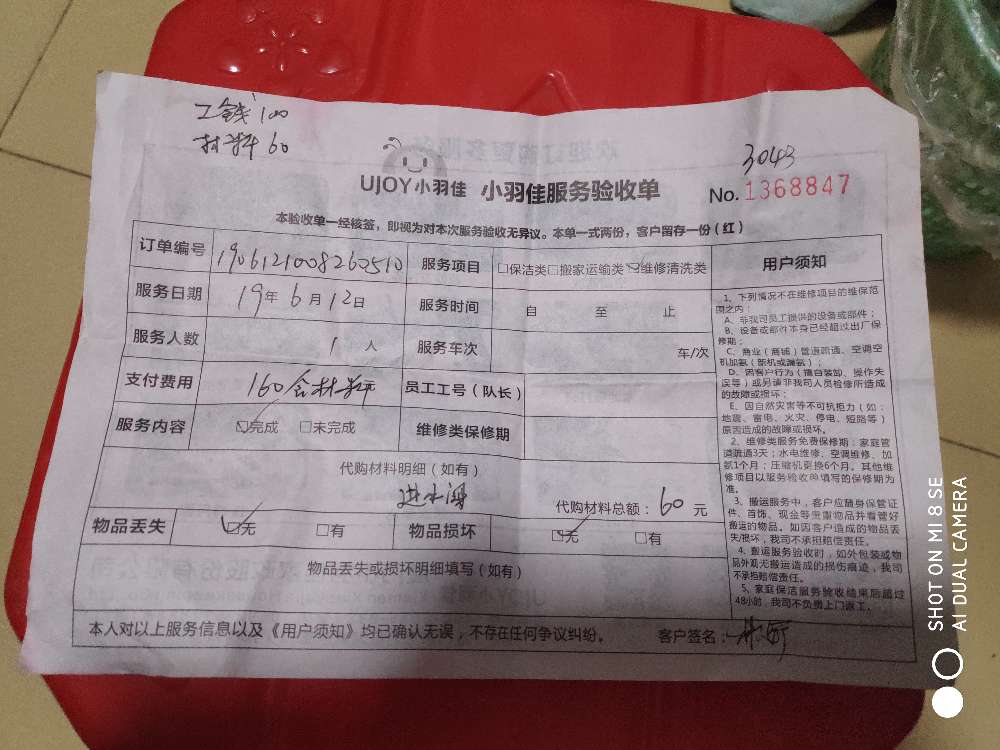 工钱100
材料60
3043
UJOY小羽佳 小羽佳服务验收单 No.1368847
本验收单一经核签，即视为对本次服务验收无异议。本单一式两份，客户留存一份（红）
订单编号 1906121008260510 服务项目 □保洁类□搬家运输类☑维修清洗类
服务日期 19年6月12日 服务时间 自 至 止
服务人数 1人 服务车次 车/次
支付费用 160含材料 员工工号（队长）
服务内容 ☑完成 □未完成 维修类保修期
代购材料明细（如有）
代购材料总额：60元
物品丢失 ☑无 □有 物品损坏 ☑无 □有
物品丢失或损坏明细填写（如有）
本人对以上服务信息以及《用户须知》均已确认无误，不存在任何争议纠纷。 客户签名：
用户须知
1、下列情况不在维修项目的维保范
围之内：
A、非我司员工提供的设备或部件；
B、设备或部件本身已经超过出厂保
修期；
C、商业（商铺）管道疏通、空调空
机加氨（新机或漏氨）；
D、因客户行为（擅自装卸、操作失
误等）或另请非我司人员检修所造成
的故障或损坏；
E、因自然灾害等不可抗拒力（如：
地震、雷电、火灾、停电、短路等）
原因造成的故障或损坏。
2、维修类服务免费保修期：家庭管
道疏通3天；水电维修、空调维修、加
氨1个月；压缩机更换6个月。其他维
修项目以服务验收单填写的保修期为
准。
3、搬运服务中，客户应随身保管证
件、首饰、现金等贵重物品并看管好
搬运的物品。如因客户造成的物品丢
失/损坏，我司不承担赔偿责任。
4、搬运服务验收时，如外包装或物
品外观无搬运造成的损伤痕迹，我司
不承担赔偿责任。
5、家庭保洁服务验收结束后超过
48小时，我司不负责上门返工。
SHOT ON MI 8 SE
AI DUAL CAMERA